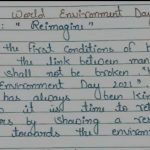 World Environment Day
: "Reimagine"
the first conditions of h
the link between man
shall not be broken."
Environment Day 2021"
has always been kin
it is time to ret
by showing a res
towards the environm